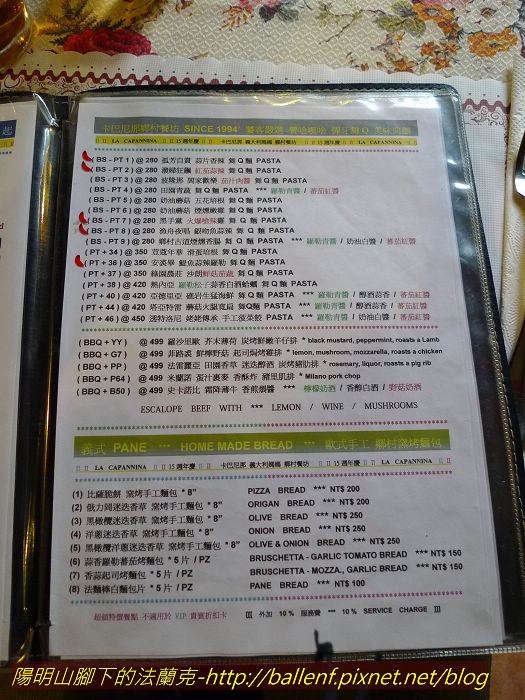 卡巴尼那鄉村餐坊 SINCE 1994' 饕客嚴選 彈牙舞Q
LA CAPANNINA 15週年慶 卡巴尼那 義大利媽媽 鄉村餐坊 LA CAPANNINA
( BS - PT 1 ) @ 280 孤芳自賞 蒜片香辣 舞Q麵 PASTA
( BS - PT 2 ) @ 280 紅茄蒜辣 舞Q麵 PASTA
( BS - PT 3 ) @ 280 波隆那 闔家歡樂 茄汁肉醬 舞Q麵 PASTA
( BS - PT 4 ) @ 280 田園青蔬 舞Q麵 PASTA *** 羅勒青醬 / 蕃茄紅醬
( BS - PT 5 ) @ 280 奶油蘑菇 五花培根 舞Q麵 PASTA
( BS - PT 6 ) @ 280 奶油蘑菇 煙燻嫩雞 舞Q麵 PASTA
( BS - PT 7 ) @ 280 黑手黨 火爆嗆辣雞 舞Q麵 PASTA
( BS - PT 8 ) @ 280 漁舟夜唱 銀吻魚蒜辣 舞Q麵 PASTA
( BS - PT 9 ) @ 280 鄉村古道煙燻香腸 舞Q麵 PASTA * 羅勒青醬 / 奶油白醬 / 蕃茄紅醬
( PT + 34 ) @ 350 荳蔻年華 滑蛋培根 舞Q麵 PASTA
( PT + 36 ) @ 350 安裘畢 鯷魚蒜辣羅勒 舞Q麵 PASTA
( PT + 37 ) @ 350 綠園農莊 沙朗鮮菇茄蔬 舞Q麵 PASTA
( PT + 38 ) @ 420 熱內亞 羅勒松子蒜香白酒蛤蠣 舞Q麵 PASTA
( PT + 40 ) @ 420 亞德里亞 礁岩生猛海鮮 舞Q麵 PASTA *** 羅勒青醬 / 醇酒蒜香 / 蕃茄紅醬
( PT + 44 ) @ 420 塔亞特雷 蘑菇火腿寬扁 舞Q麵 PASTA *** 羅勒青醬 / 醇酒蒜香 / 蕃茄紅醬
( PT + 46 ) @ 450 週特洛尼 姥姥傳承 手工菠菜餃 PASTA *** 羅勒青醬 / 奶油白醬 / 蕃茄紅醬
( BBQ + YY ) @ 499 羅沙里歐 芥末薄荷 炭烤鮮嫩羊仔排 * black mustard, peppermint, roasts a Lamb
( BBQ + G7 ) @ 499 菲路裘 鮮檸野菇 起司焗烤雞排 * lemon, mushroom, mozzarella, roasts a chicken
( BBQ + PP ) @ 499 法雷麗亞 田園香草 迷迭醇酒 炭烤豬肋排 * rosemary, liquor, roasts a pig rib
( BBQ + P64 ) @ 499 米蘭諾 蛋汁裹麥 香酥炸 豬里肌排 * Milano pork chop
( BBQ + B50 ) @ 499 史卡諾比 霜降薄牛 香煎燜醬 *** 檸檬奶酒 / 香醇白酒 / 野菇奶酒
ESCALOPE BEEF WITH *** LEMON / WINE / MUSHROOMS
義式 PANE *** HOME MADE BREAD *** 歐式手工 鄉村窯烤麵包
LA CAPANNINA 15週年慶 卡巴尼那 義大利媽媽 鄉村餐坊 LA CAPANNINA
(1) 比薩脆餅 窯烤手工麵包 * 8" PIZZA BREAD *** NT$ 200
(2) 俄力岡迷迭香草 窯烤手工麵包 * 8" ORIGAN BREAD *** NT$ 200
(3) 黑橄欖迷迭香草 窯烤手工麵包 * 8" OLIVE BREAD *** NT$ 250
(4) 洋蔥迷迭香草 窯烤手工麵包 * 8" ONION BREAD *** NT$ 250
(5) 黑橄欖洋蔥迷迭香草 窯烤手工麵包 * 8" OLIVE & ONION BREAD *** NT$ 250
(6) 蒜香羅勒蕃茄烤麵包 * 5片 / PZ BRUSCHETTA - GARLIC TOMATO BREAD *** NT$ 150
(7) 香蒜起司烤麵包 * 5片 / PZ BRUSCHETTA - MOZZA., GARLIC BREAD *** NT$ 150
(8) 法麵棒白麵包片 * 5片 / PZ PANE BREAD *** NT$ 100
超值特價餐點 不適用於 VIP 貴賓折扣卡 外加 10 % 服務費 *** 10 % SERVICE CHARGE
陽明山腳下的法蘭克-http://ballenf.pixnet.net/blog